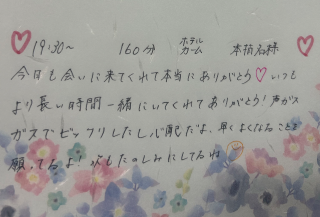 19:30〜 160分 ホテル カーム 本指名様
今日も会いに来てくれて本当にありがとう♡ いつも
より長い時間一緒にいてくれてありがとう!声がス
ガスでビックリしたし心配だよ、早くよくなることを
願ってるよ!次もたのしみにしてるね